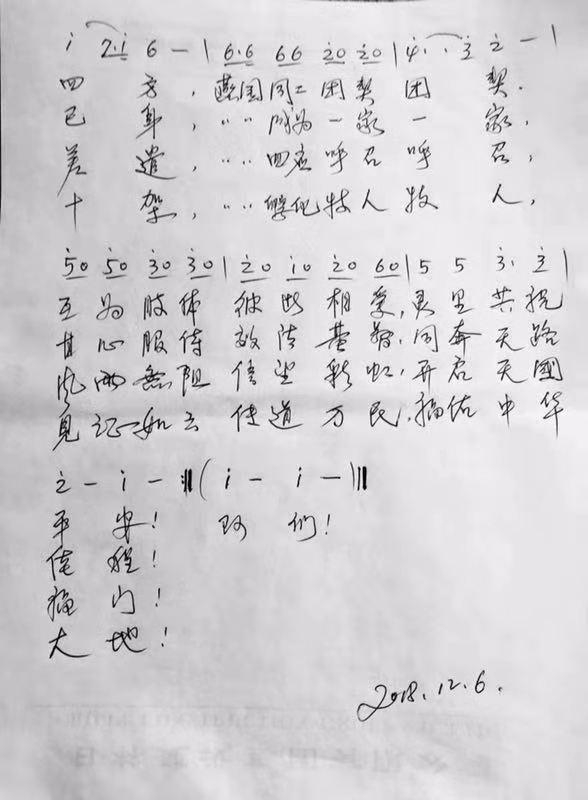 i̇ 2̇·i̇ 6 – | 6·6 66 2̇0 2̇0 | 4̇· · 3̇ 2̇ – |
四 方，燕国同工团契团 契.
己 身，"" 同为一家一 家，
差 遣，"" 四应呼召呼 召，
十 架，"" 孵化牧人牧 人，
5̇0 5̇0 3̇0 3̇0 | 2̇0 i̇0 2̇0 60 | 5 5 3̇· 3̇
互为肢体 彼此相爱，灵里共祝
甘心服侍 效法基督，同奔天路
风雨無阻 信望彩虹，开启天國
见证如云 传道万民，福佑中华
2̇ – i̇ – :‖ ( i̇ – i̇ – )‖
平 安！ 阿 们！
佳 程！
福 门！
大 地！
2018.12.6.